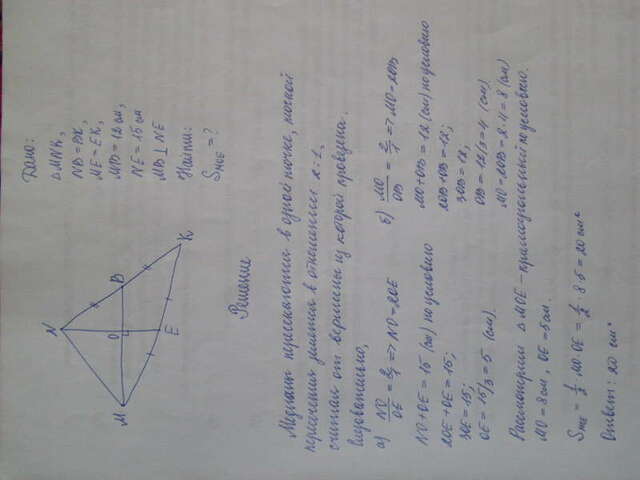 Дано:
△MNK,
NB=BK,
ME=EK,
MB=12 см,
NE=15 см
MB⊥NE
Найти:
S MOE = ?
N
B
K
O
M
E
Решение
Медианы пересекаются в одной точке, точкой
пересечения делятся в отношении 2:1,
считая от вершины из которой проведена.
а) NO/OE = 2/1 => NO=2OE
NO+OE=15 (см) по условию
2OE+OE=15;
3OE=15;
OE=15/3=5 (см).
б) MO/OB = 2/1 => MO=2OB
MO+OB=12 (см) по условию
2OB+OB=12;
3OB=12,
OB=12/3=4 (см)
MO=2OB=2·4=8 (см)
Рассмотрим △MOE - прямоугольный по условию.
MO=8 см, OE=5 см.
S MOE = 1/2 · MO · OE = 1/2 · 8 · 5 = 20 см²
Ответ: 20 см²